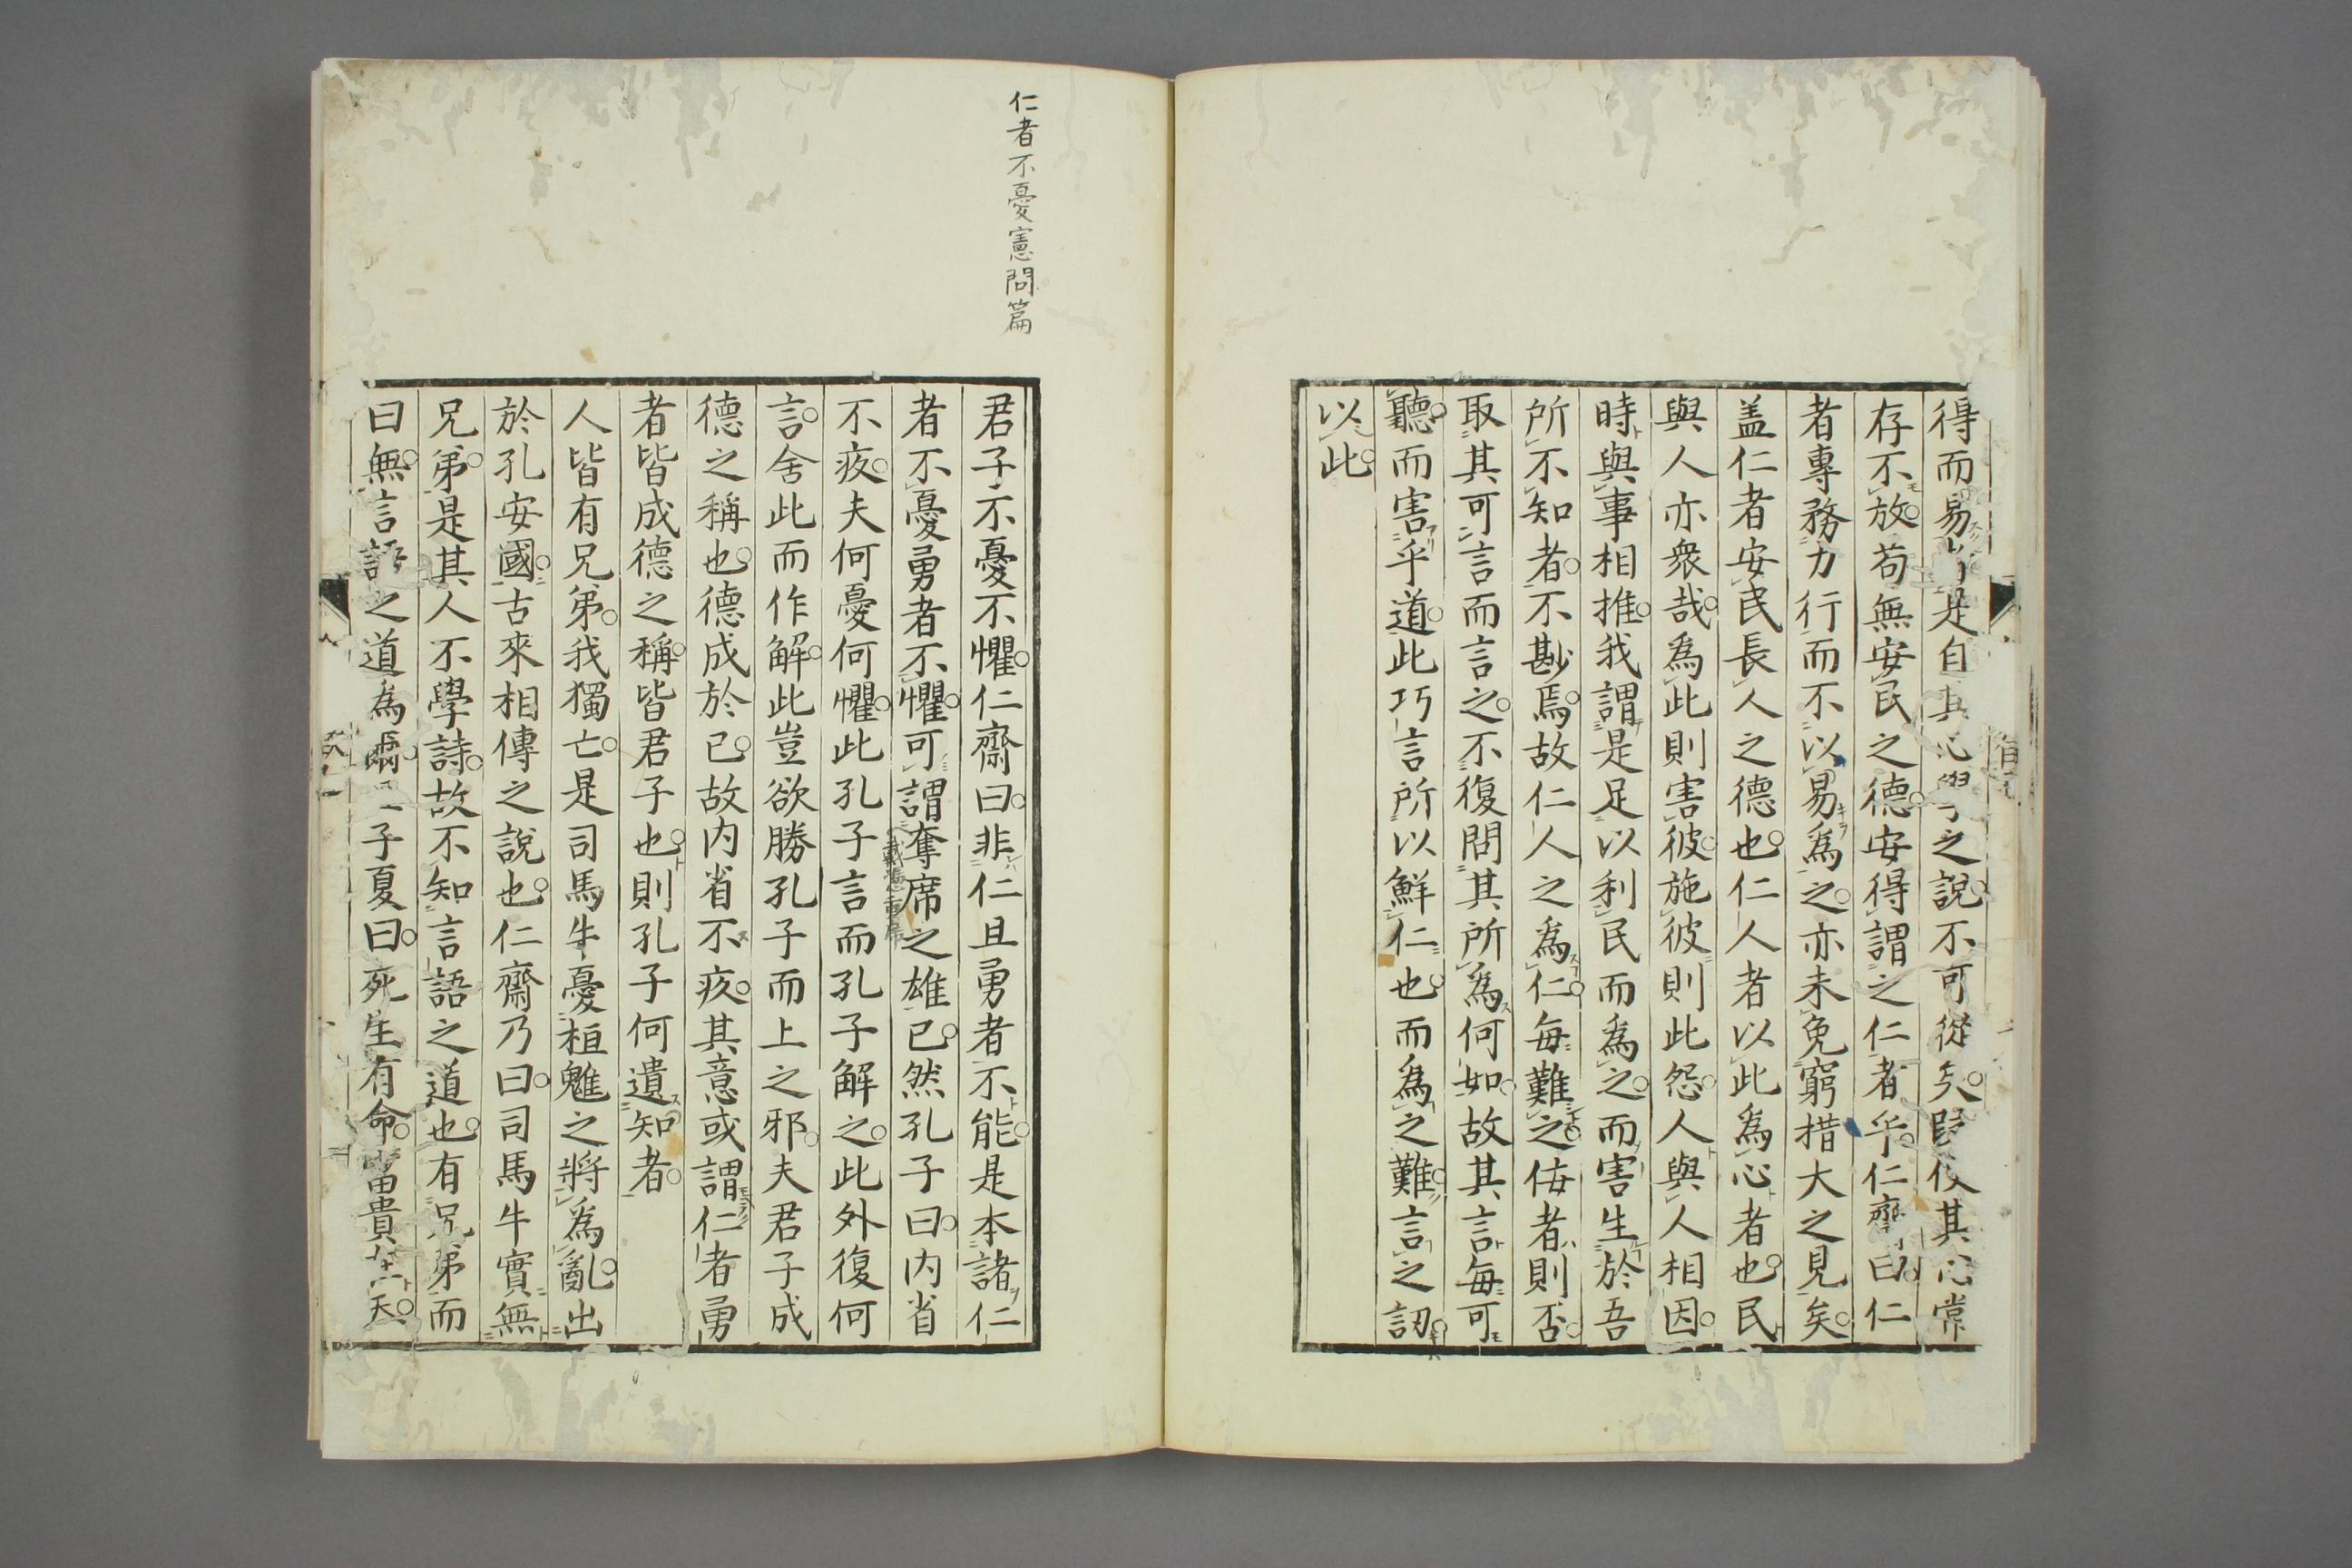 得而易是自其心學之說不可從矣假使其心常
存不放苟無安民之德安得謂之仁者乎仁齋曰仁
者專務力行而不以易為之亦未免窮措大之見矣
盖仁者安民長人之德也仁人者以此為心者也民
與人亦衆哉為此則害彼施彼則此怨人與人相因
時與事相推我謂是足以利民而為之而害生於吾
所不知者不尠焉故仁人之為仁每難之佞者則否
取其可言而言之不復問其所為何如故其言每可
聽而害乎道此巧言所以鮮仁也而為之難言之訒
以此
仁者不憂憲問篇
君子不憂不懼仁齋曰非仁且勇者不能是本諸仁
者不憂勇者不懼可謂奪席之雄已然孔子曰内省
戴憑
不疚夫何憂何懼此孔子言而孔子解之此外復何
言舍此而作解此豈欲勝孔子而上之邪夫君子成
德之稱也德成於己故内省不疚其意或謂仁者勇
者皆成德之稱皆君子也則孔子何遺知者
人皆有兄弟我獨亡是司馬牛憂桓魋之將為亂出
於孔安國古來相傳之說也仁齋乃曰司馬牛實無
兄弟是其人不學詩故不知言語之道也有兄弟而
曰無言語之道為爾子夏曰死生有命富貴在天